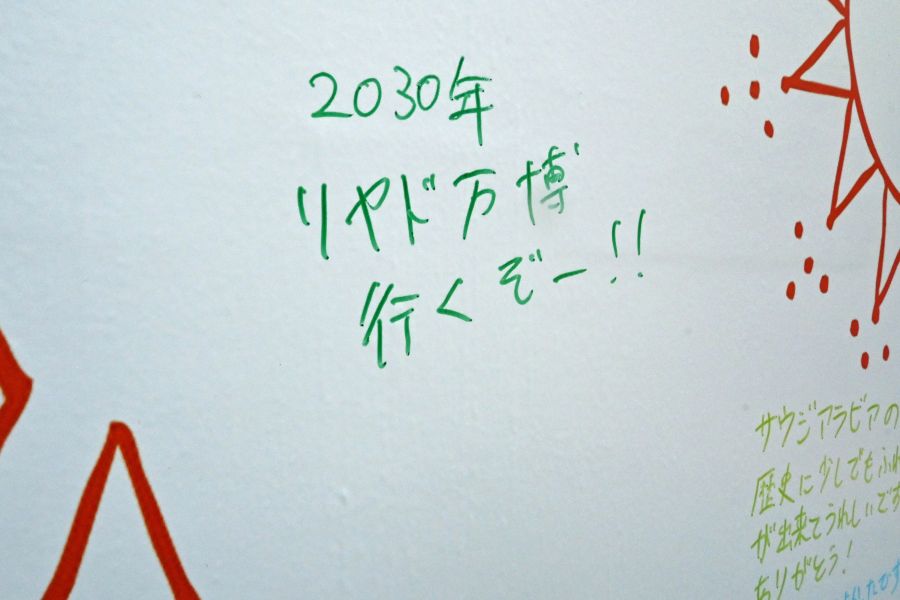 2030年
リヤド万博
行くぞー!!
サウジアラビアの
歴史に少しでもふれ
が出来てうれしいです
ありがとう!